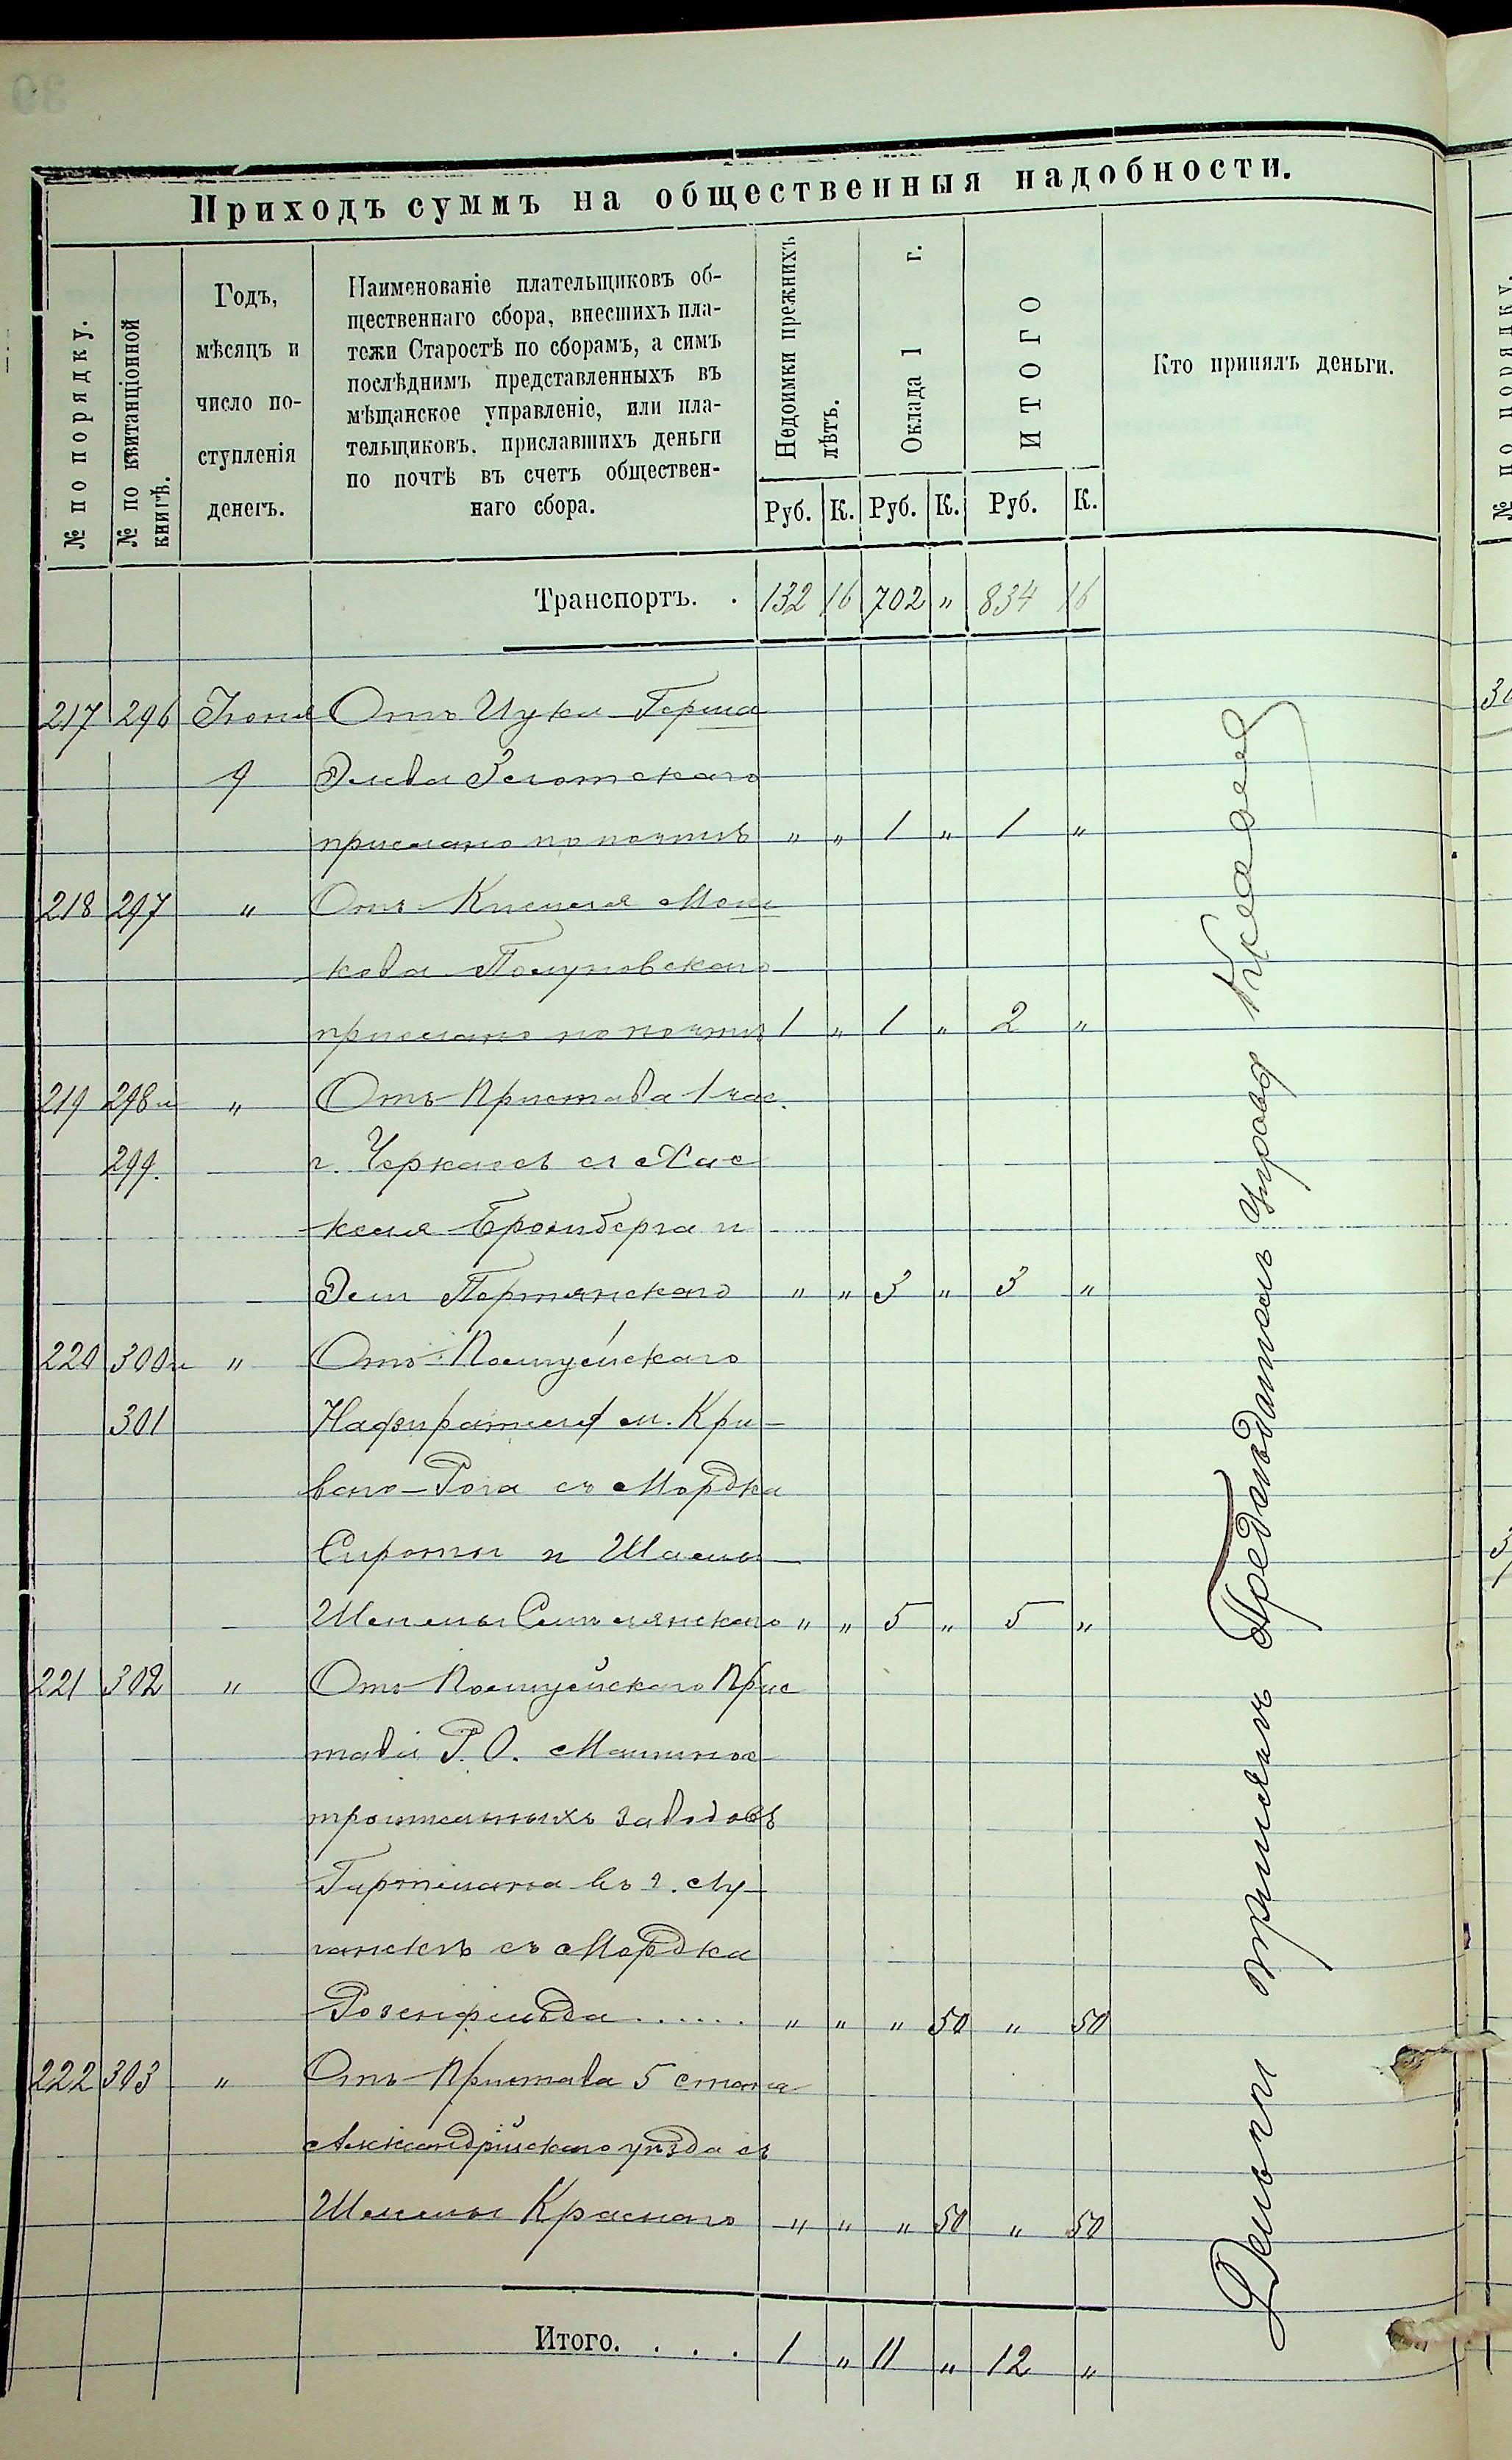 Приходъ суммъ на общественныя надобности.
№ по порядку.
№ по квитанціонной книгѣ.
Годъ,
мѣсяцъ и
число по-
ступленія
денегъ.
Наименованіе плательщиковъ об-
щественнаго сбора, внесшихъ пла-
тежи Старостѣ по сборамъ, а симъ
послѣднимъ представленныхъ въ
мѣщанское управленіе, или пла-
тельщиковъ, приславшихъ деньги
по почтѣ въ счетъ обществен-
наго сбора.
Недоимки прежнихъ лѣтъ.
Оклада 1 г.
ИТОГО
Кто принялъ деньги.
Руб. К. Руб. К. Руб. К.
Транспортъ. . 132 16 702 " 834 16
217 296 Іюня Отъ Цуки-Герша
9 Элева Золотскаго
прислано по почтѣ " " 1 " 1 "
218 297 " Отъ Киселя Мош
кова
прислано по почтѣ 1 " 1 " 2 "
219 298 и " Отъ Пристава 1 час.
299. г. Черкасъ съ Хас
келя Бромберга и
Пертянскаго " " 3 " 3 "
220 300 и " Отъ Полицейскаго
301 Надзирателя м. Кри-
вого-Рога съ Мордка
Сироты и
Шлемы " " 5 " 5 "
221 302 " Отъ Полицейскаго Прис
тава Р. О. Машинос
троительныхъ заводовъ
Гартмана въ г. Лу-
ганскѣ съ Мордка
Розенфельда...... " " " 50 " 50
222 303 " Отъ Пристава 5 стана
Александрійскаго уѣзда съ
Шлемы Краснаго " " " 50 " 50
Итого. . . . 1 " 11 " 12 "
Деньги принялъ Предсѣдатель Управы